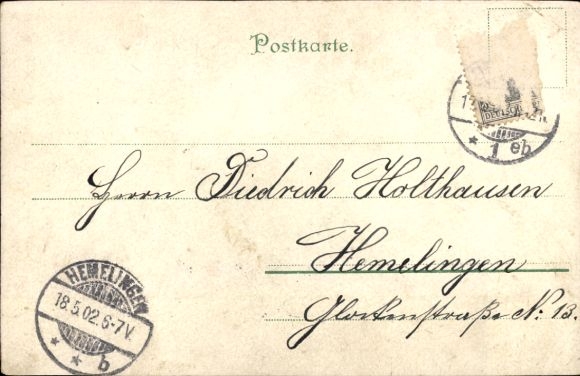 Postkarte.
17
DEUTSCH
1 eb
Herrn Diedrich Holthausen
Hemelingen
Glockenstraße N. 13.
HEMELINGEN
18.5.02.6-7V.
* * b